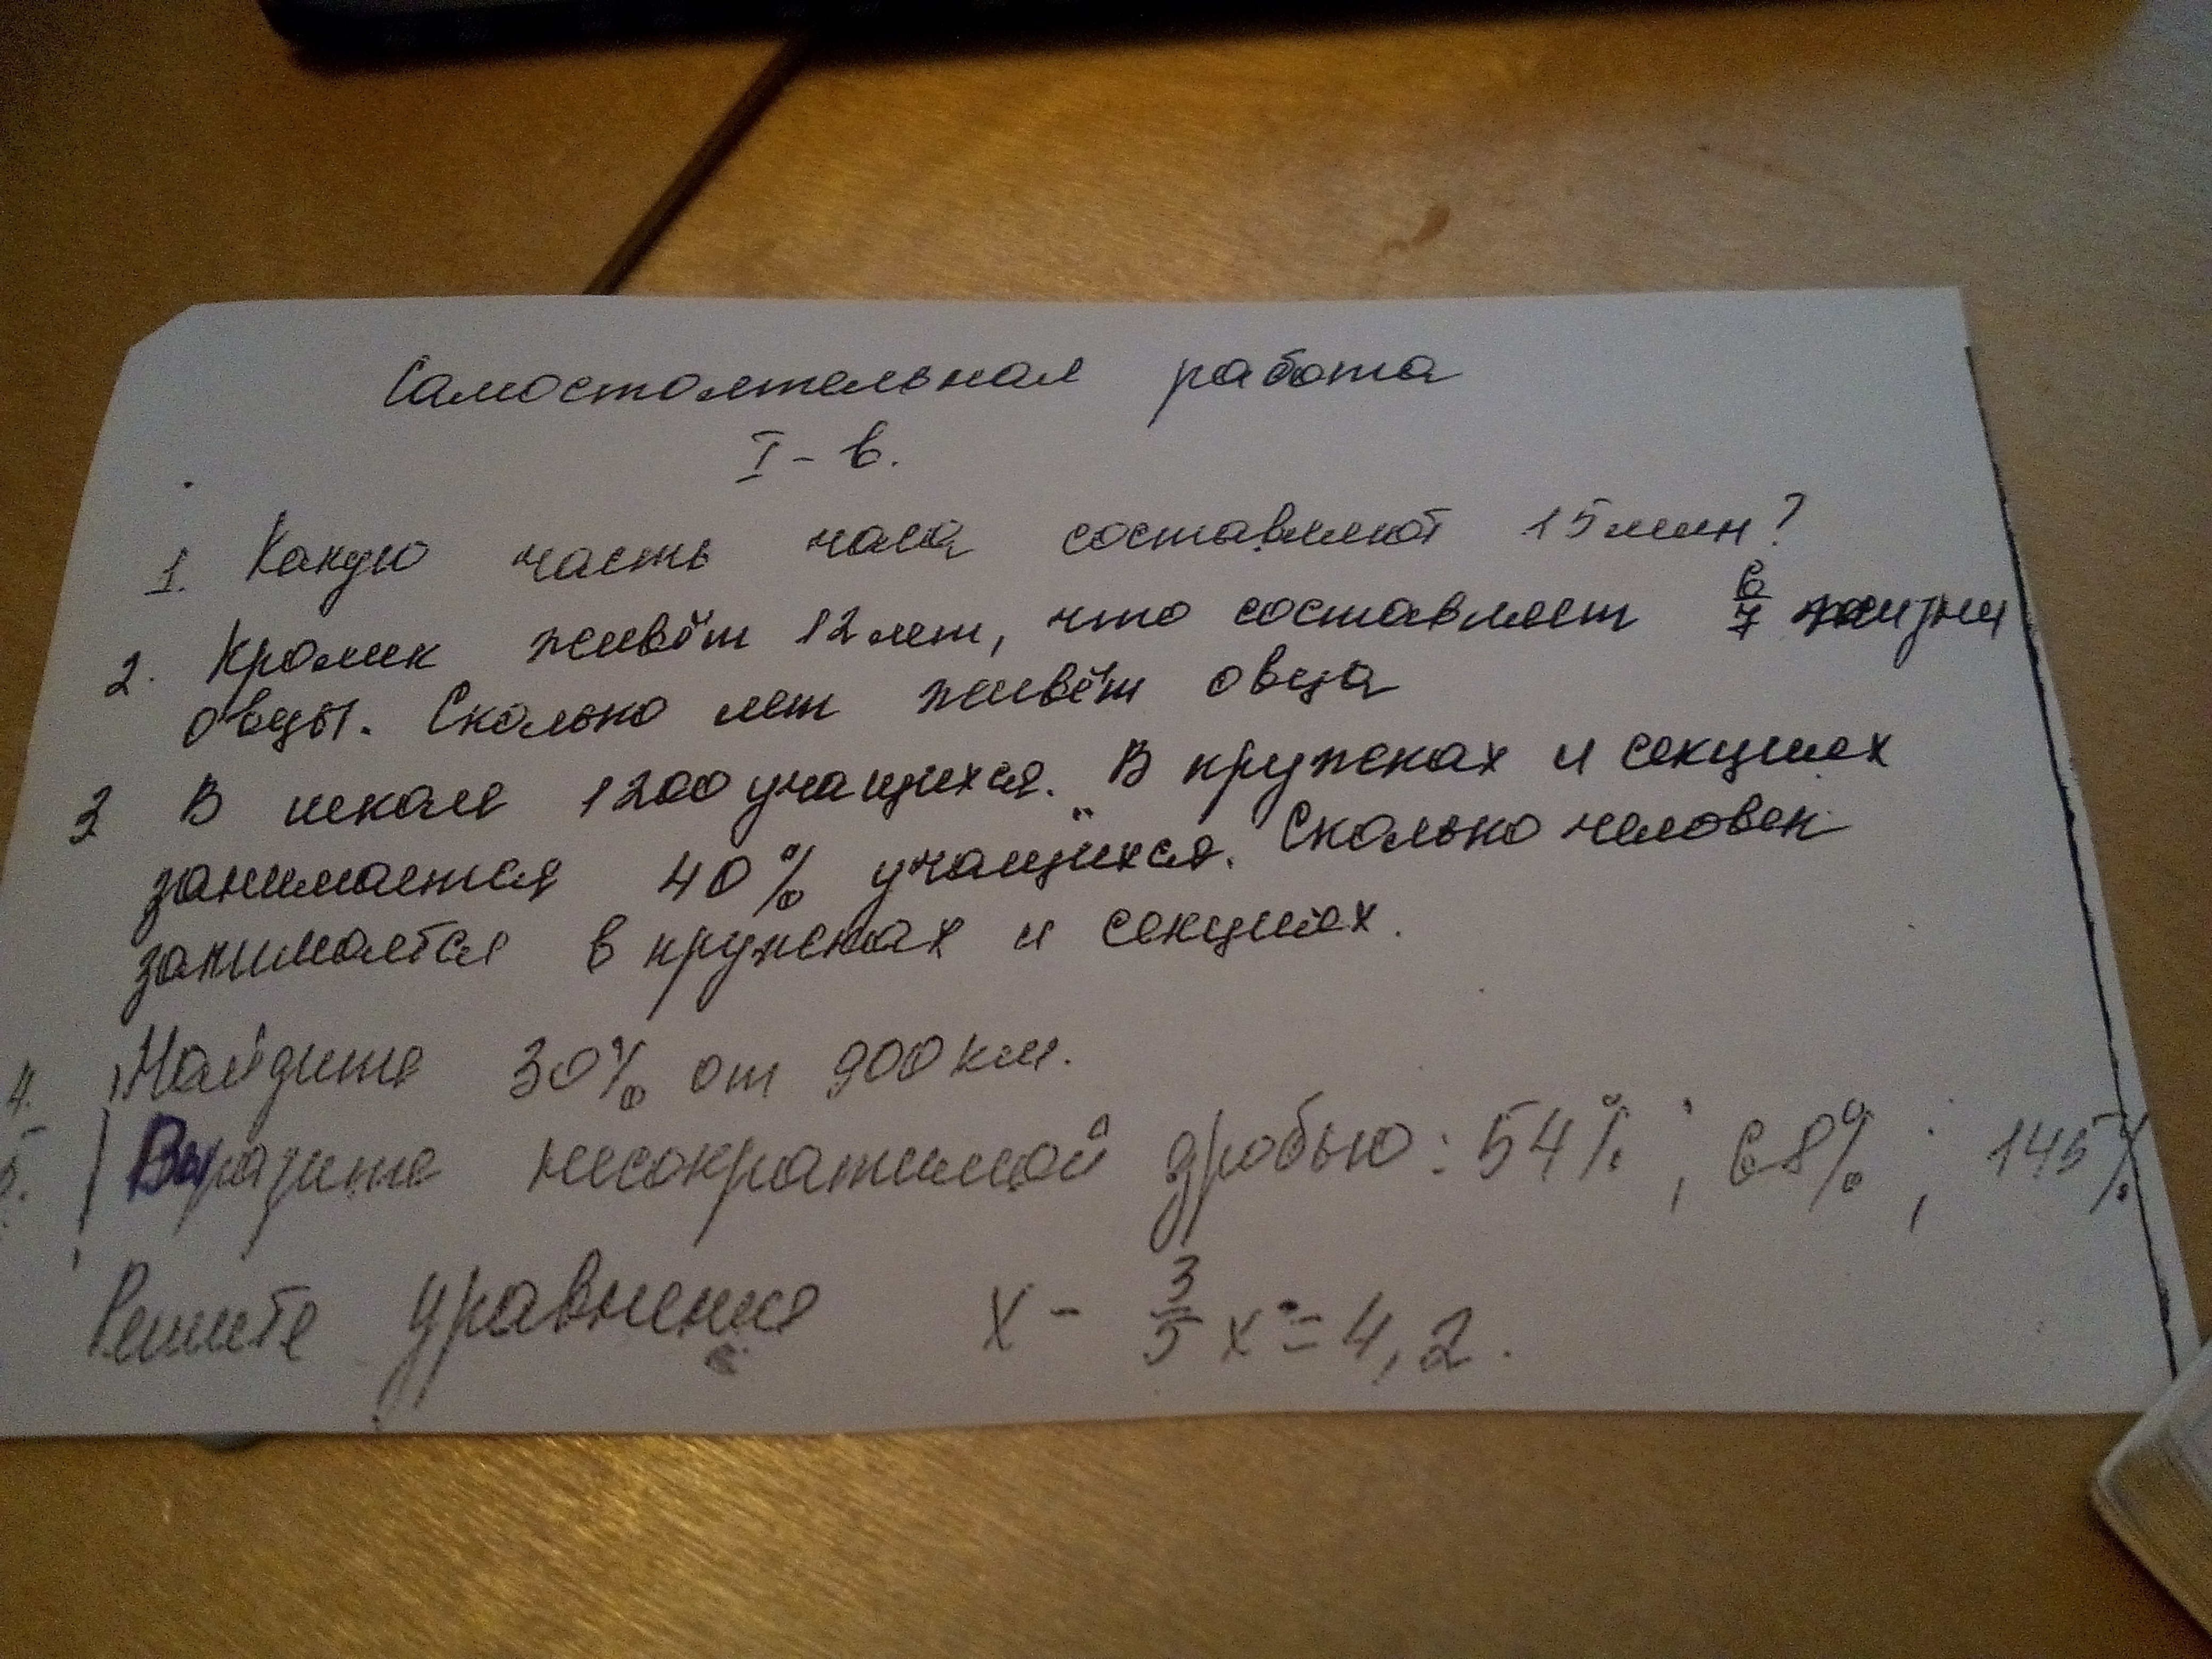 Самостоятельная работа
I - в.
1. Какую часть часа составляют 15 мин?
2. Кролик живёт 12 лет, что составляет 6/7 жизни
овцы. Сколько лет живёт овца
3 В школе 1200 учащихся. В кружках и секциях
занимается 40% учащихся. Сколько человек
занимается в кружках и секциях.
4. Найдите 30% от 900 км.
5. Выразите несократимой дробью: 54% ; 68% ; 145%
Решите уравнение x - 3/5 x = 4,2.